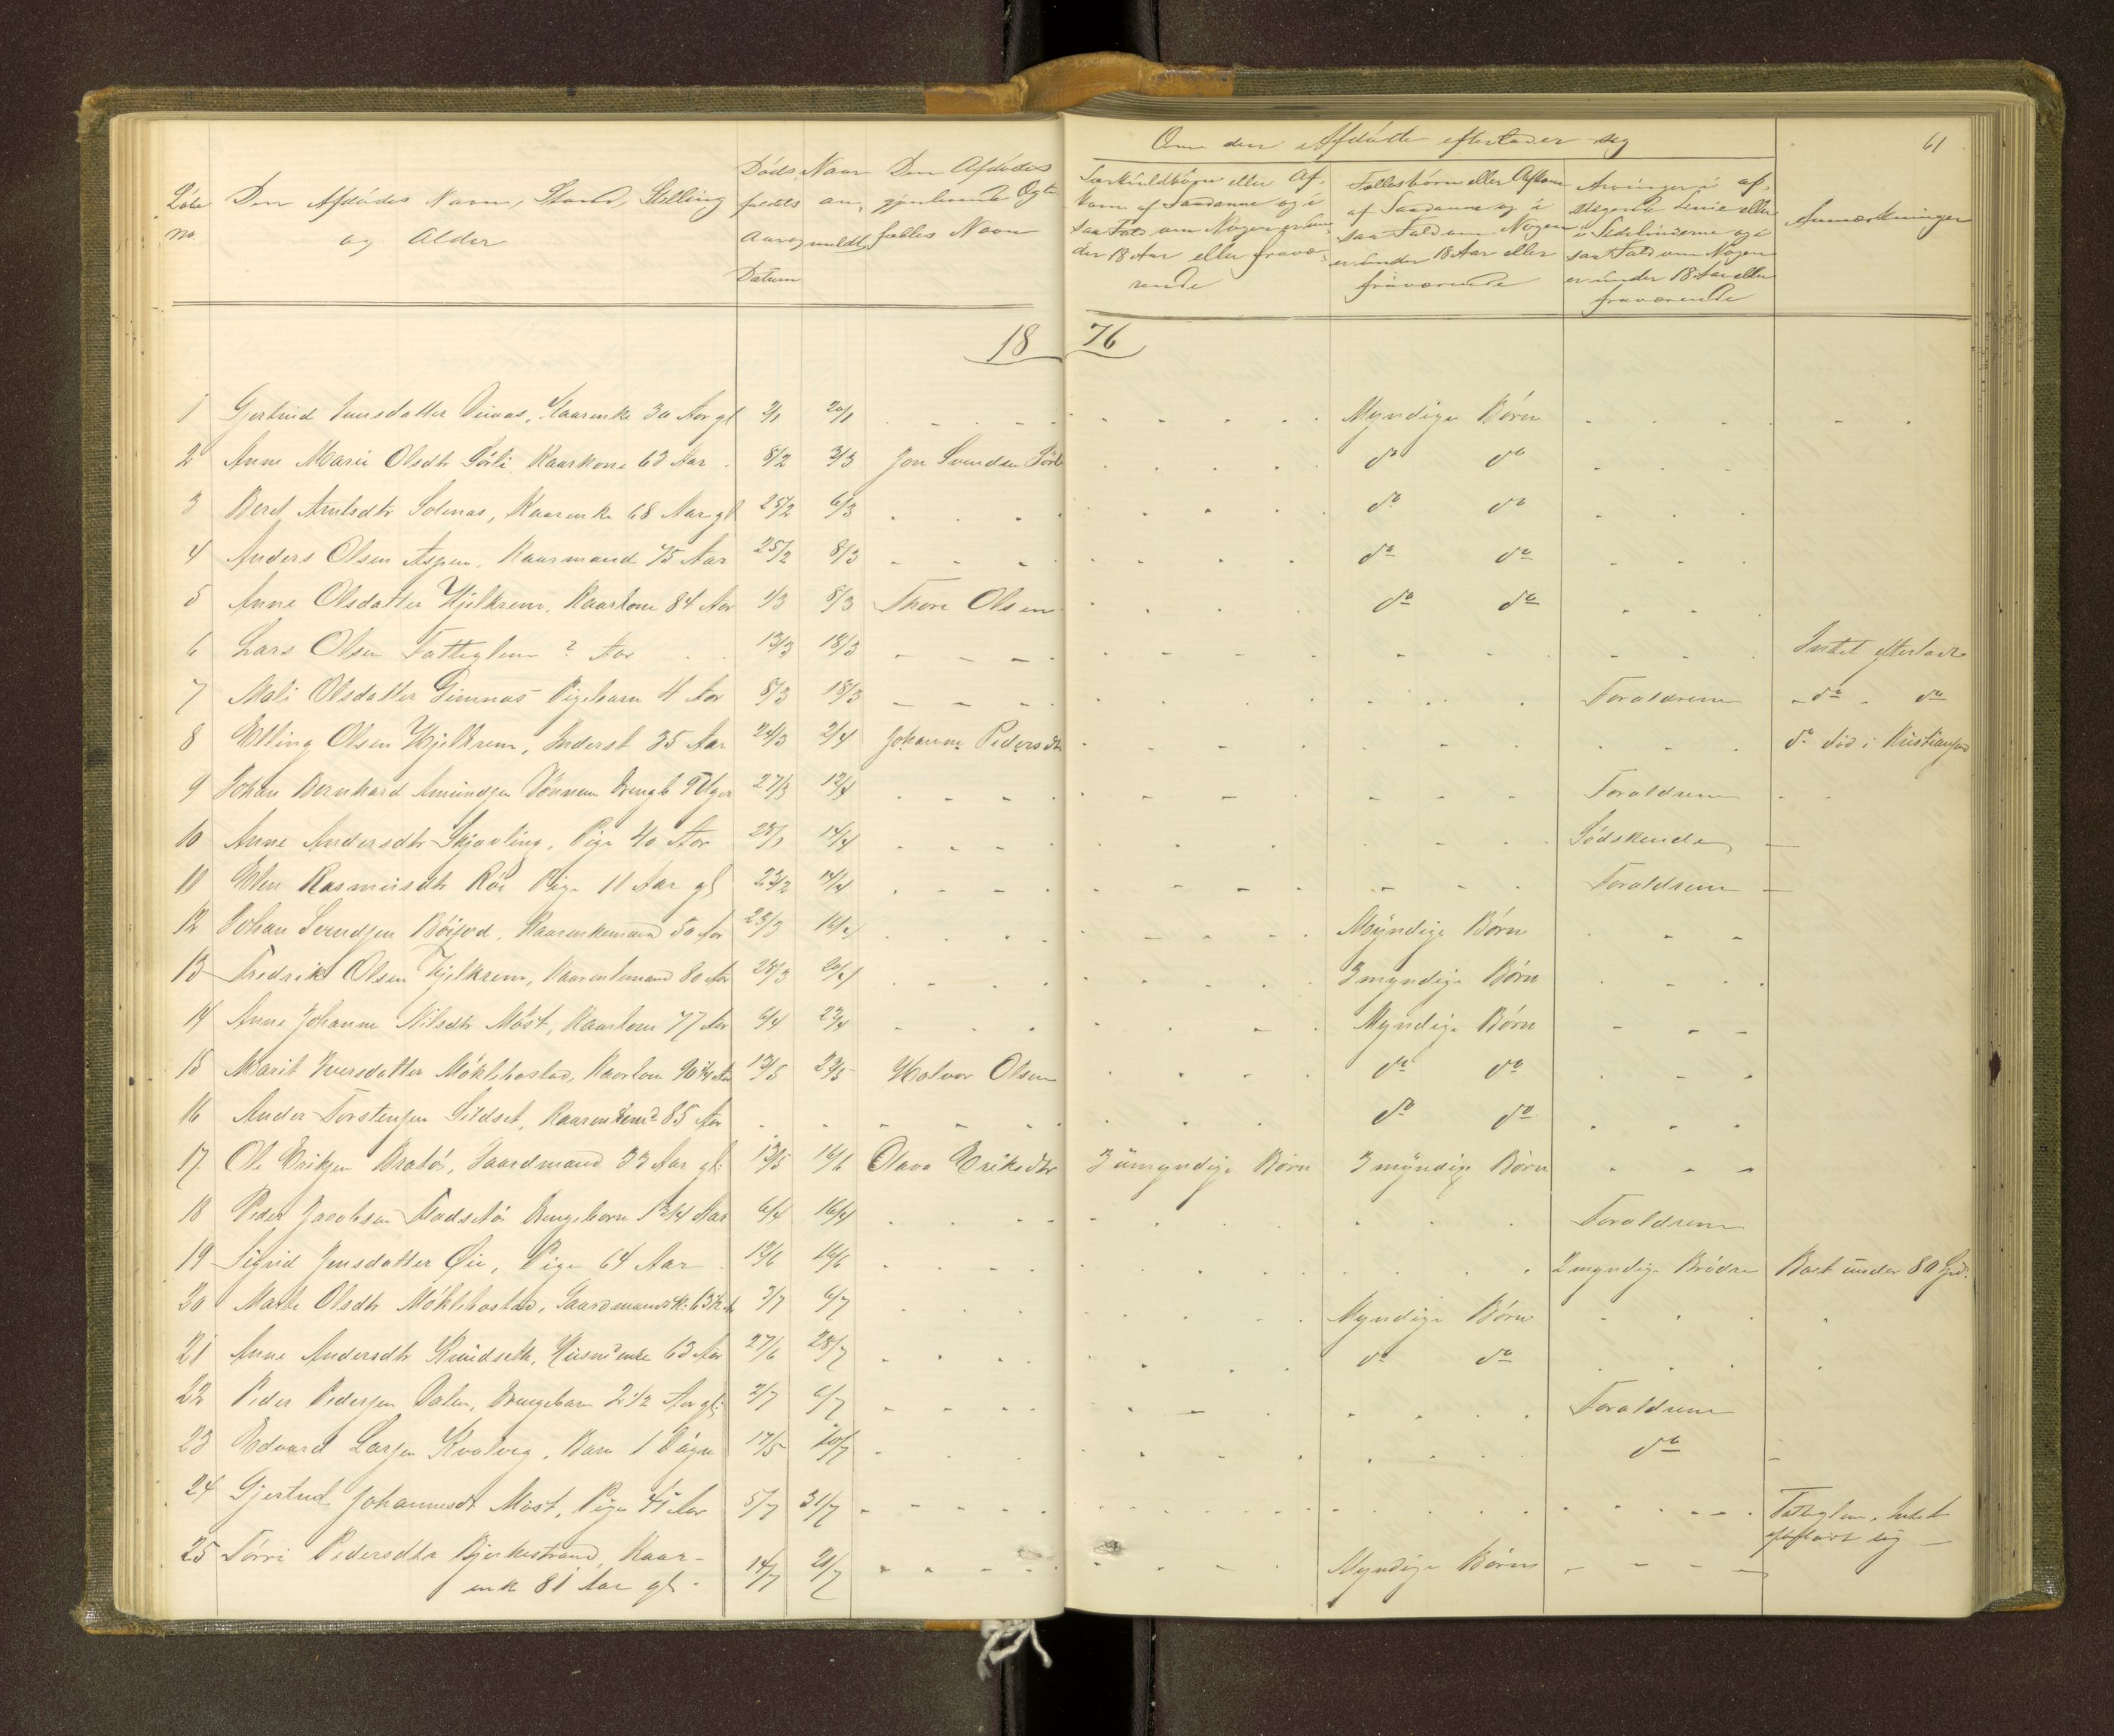 61
Om den Afdøde efterlader sig
Løbe No. | Den Afdødes Navn, Stand, Stilling og Alder | Dødsfaldets Aar og Datum | Naar anmeldt | Den Afdødes gjenlevende Ægtefælles Navn | Særkuldbørn eller Afkom af Saadanne og i saa Fald om Nogen er under 18 Aar eller fraværende | Fællesbørn eller Afkom af Saadanne og i saa Fald om Nogen er under 18 Aar eller fraværende | Arvinger i opstigende Linie eller i Sidelinierne og i saa Fald om Nogen er under 18 Aar eller fraværende | Anmærkninger
18 76
1 Gjertrud Iversdatter Kaarenke 30 Aar gl 2/1 20/1 Myndige Børn
2 Anne Marie Olsdtr Sörli, Kaarkone 63 Aar 8/2 3/3 Jon Svendsen Sörli do do
3 Beret Arntsdtr Solenas, Kaarenke 68 Aar gl 25/2 6/3 do do
4 Anders Olsen Aspen, Kaarmand 75 Aar 25/2 8/3 do do
5 Anne Olsdatter Hjelkrem, Kaarkone 84 Aar 1/3 8/3 Thore Olsen do do
6 Lars Olsen Fattiglem ? Aar 13/3 18/3 Intet efterladt
7 Mali Olsdatter Gimnas Pigebarn 4 Aar 8/3 18/3 Forældrene do do
8 Elling Olsen Hjelkrem, Inderst 35 Aar 24/3 2/4 Johanne Pedersdtr do död i Kristiansund
9 Johan Bernhard Amundsen Drengb 9 Uger 27/3 12/4 Forældrene
10 Anne Andersdtr Skjøvling, Pige 40 Aar 14/4 Sødskende
11 Elen Rasmusdtr Röe Pige 11 Aar gl 23/2 14/4 Forældrene
12 Johan Svendsen Kaarenkemand 50 Aar 23/3 16/4 Myndige Børn
13 Fredrik Olsen Hjelkrem, Kaarenkemand 80 Aar 28/3 20/4 3 myndige Børn
14 Anne Johanne Nilsdtr Möst, Kaarkone 77 Aar 6/4 23/4 Myndige Børn
15 Marit Iversdatter Möklebostad, Kaarkone Aar 13/5 23/5 Halvor Olsen do do
16 Ander Torstensen Sildset, Kaarenkemd 85 Aar do do
17 Ole Eriksen Bratös, Gaardmand 33 Aar gl: 13/5 16/6 Olava Eriksdtr 3 umyndige Børn 3 myndige Børn
18 Peder Jacobsen Drengebarn 1 3/4 Aar 6/4 16/4 Forældrene
19 Sigrid Jensdatter Øie, Pige 64 Aar 12/6 16/6 2 myndige Brödre Boet under 80 Spd.
20 Marte Olsdtr Möklebostad, Gaardmandsk: 63 1/2 Aar 3/7 6/7 Myndige Børn
21 Anne Andersdtr Knudseth, Husmdenke 63 Aar 27/6 28/7 do do
22 Peder Pedersen Dalen, Drengebarn 2 1/2 Aar gl: 2/7 6/7 Forældrene
23 Edvard Larsen Kvalvog, Barn 1 Dögn 17/5 10/7 do
24 Gjertrud Johannesdt Möst, Pige 41 Aar 5/7 31/7 Fattiglem, Intet efterladt sig
25 Törri Pedersdtr Bjerkestrand, Kaar-
enk 81 Aar gl. 14/7 21/7 Myndige Børn